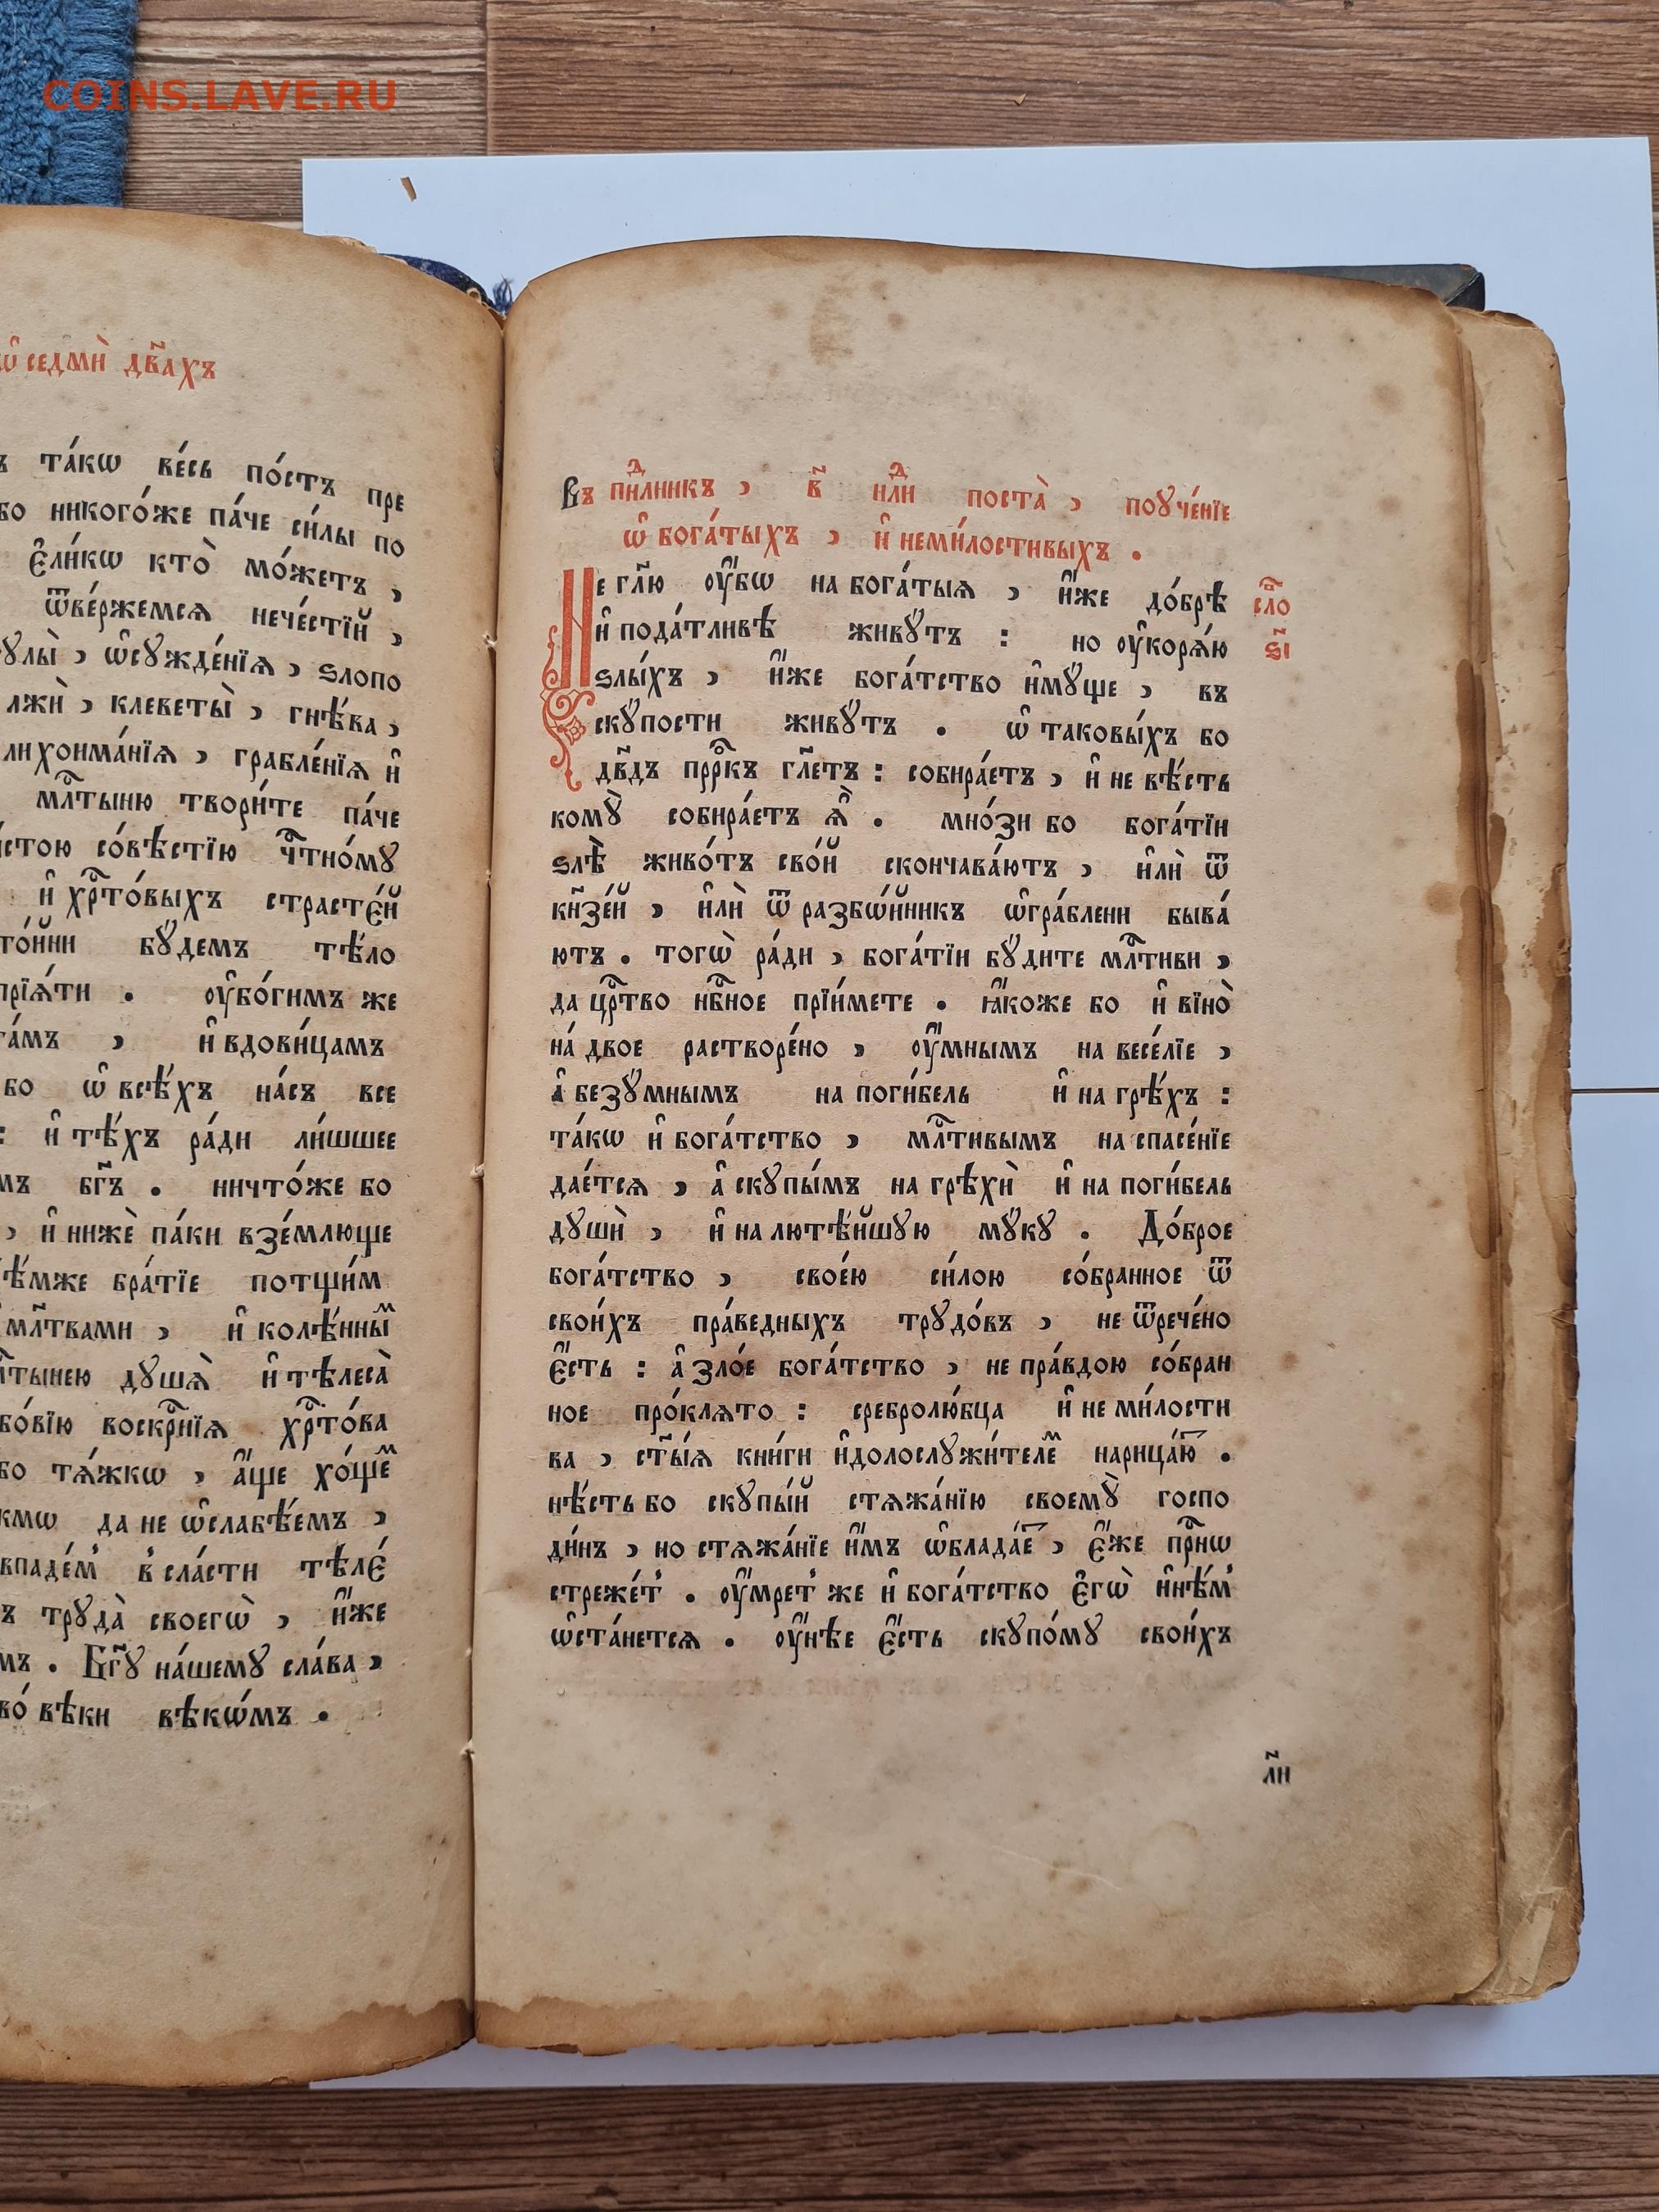 COINS.LAVE.RU
ѡ҆ седмѝ дв҃ахъ
та́кѡ ве́сь по́стъ пре
бо никого́же па́че си́лы по
є҆ли́кѡ кто̀ мо́жетъ ,
ѿве́ржемсѧ нече́стїй ,
ѡ҆сꙋжде́нїѧ , ѕлопо
лжѝ , клеветы̀ , гнѣ́ва ,
лихоима́нїѧ , грабле́нїѧ и҆
мл҃тыню твори́те па́че
со́вѣстїю чⷭ҇тно́мꙋ
и҆ хрⷭ҇то́выхъ страсте́й
бꙋ́демъ тѣ́ло
прїѧ́ти . ᲂу҆бо́гимъ же
, и҆ вдови́цамъ
бо ѡ҆ всѣ́хъ на́съ все
: и҆ тѣ́хъ ра́ди ли́шшее
бг҃ъ . ничто́же бо
, и҆ нижѐ па́ки взе́млюще
бра́тїе потщи́м
мл҃твами , и҆ колѣ́нны
дꙋша̀ и҆ тѣлеса̀
воскрⷭ҇нїѧ хрⷭ҇то́ва
бо тѧ́жкѡ , а҆́ще хо́ще
да не ѡ҆слабѣ́емъ ,
впаде́м в сла́сти тѣле́
трꙋда̀ своегѡ̀ , и҆́же
. Бг҃ꙋ на́шемꙋ сла́ва ,
во́ вѣки вѣкѡ́мъ .
Въ пнⷣлникъ , в҃ нлⷣи поста̀ , поꙋче́нїе
ѡ҆ бога́тыхъ , и҆ неми́лостивыхъ .
Не гл҃ю ᲂу҆́бѡ на бога́тыѧ , и҆́же до́брѣ
сло́
и҆ пода́тливѣ живꙋ́тъ : но ᲂу҆корѧ́ю
ѕ҃і
ѕлы́хъ , и҆́же бога́тство и҆мꙋ́ще , въ
скꙋ́пости живꙋ́тъ . ѡ҆ таковы́хъ бо
дв҃дъ прⷪ҇ркъ гл҃етъ : собира́етъ , и҆ не вѣ́сть
комꙋ̀ собира́етъ ѧ҆̀ . мно́зи бо бога́тїи
ѕлѣ̀ живо́тъ сво́й скончава́ютъ , и҆лѝ ѿ
кн҃зе́й , и҆лѝ ѿ разбѡ́йникъ ѡ҆гра́блени быва́
ютъ . тогѡ̀ ра́ди , бога́тїи бꙋ́дите млⷭ҇тиви ,
да црⷭ҇тво нбⷭ҇ное прїи́мете . ꙗ҆́коже бо и҆ вїно̀
на́ двое растворе́но , ᲂу҆́мнымъ на весе́лїе ,
а҆ безꙋ́мнымъ на поги́бель и҆ на грѣ́хъ :
та́кѡ и҆ бога́тство , млⷭ҇тивымъ на спасе́нїе
дае́тсѧ , а҆ скꙋпы́мъ на грѣхѝ и҆ на поги́бель
дꙋшѝ , и҆ на лютѣ́йшꙋю мꙋ́кꙋ . До́брое
бога́тство , свое́ю си́лою со́бранное ѿ
свои́хъ пра́ведныхъ трꙋдо́въ , не ѿрече́но
є҆́сть : а҆ зло́е бога́тство , не пра́вдою со́бран
ное про́клѧто : сребролю́бца и҆ не ми́лости
ва , ст҃ы́ѧ кни́ги и҆долослꙋжи́телеⷨ нарица́ю .
нѣ́сть бо скꙋпы́й стѧжа́нїю своемꙋ̀ госпо
ди́нъ , но стѧжа́нїе и҆́мъ ѡ҆блада́е , є҆́же прⷭ҇нѡ
стреже́т . ᲂу҆́мрет же и҆ бога́тство є҆гѡ̀ и҆нѣ́м
ѡ҆ста́нетсѧ . ᲂу҆́нѣе є҆́сть скꙋпо́мꙋ свои́хъ
л҃и